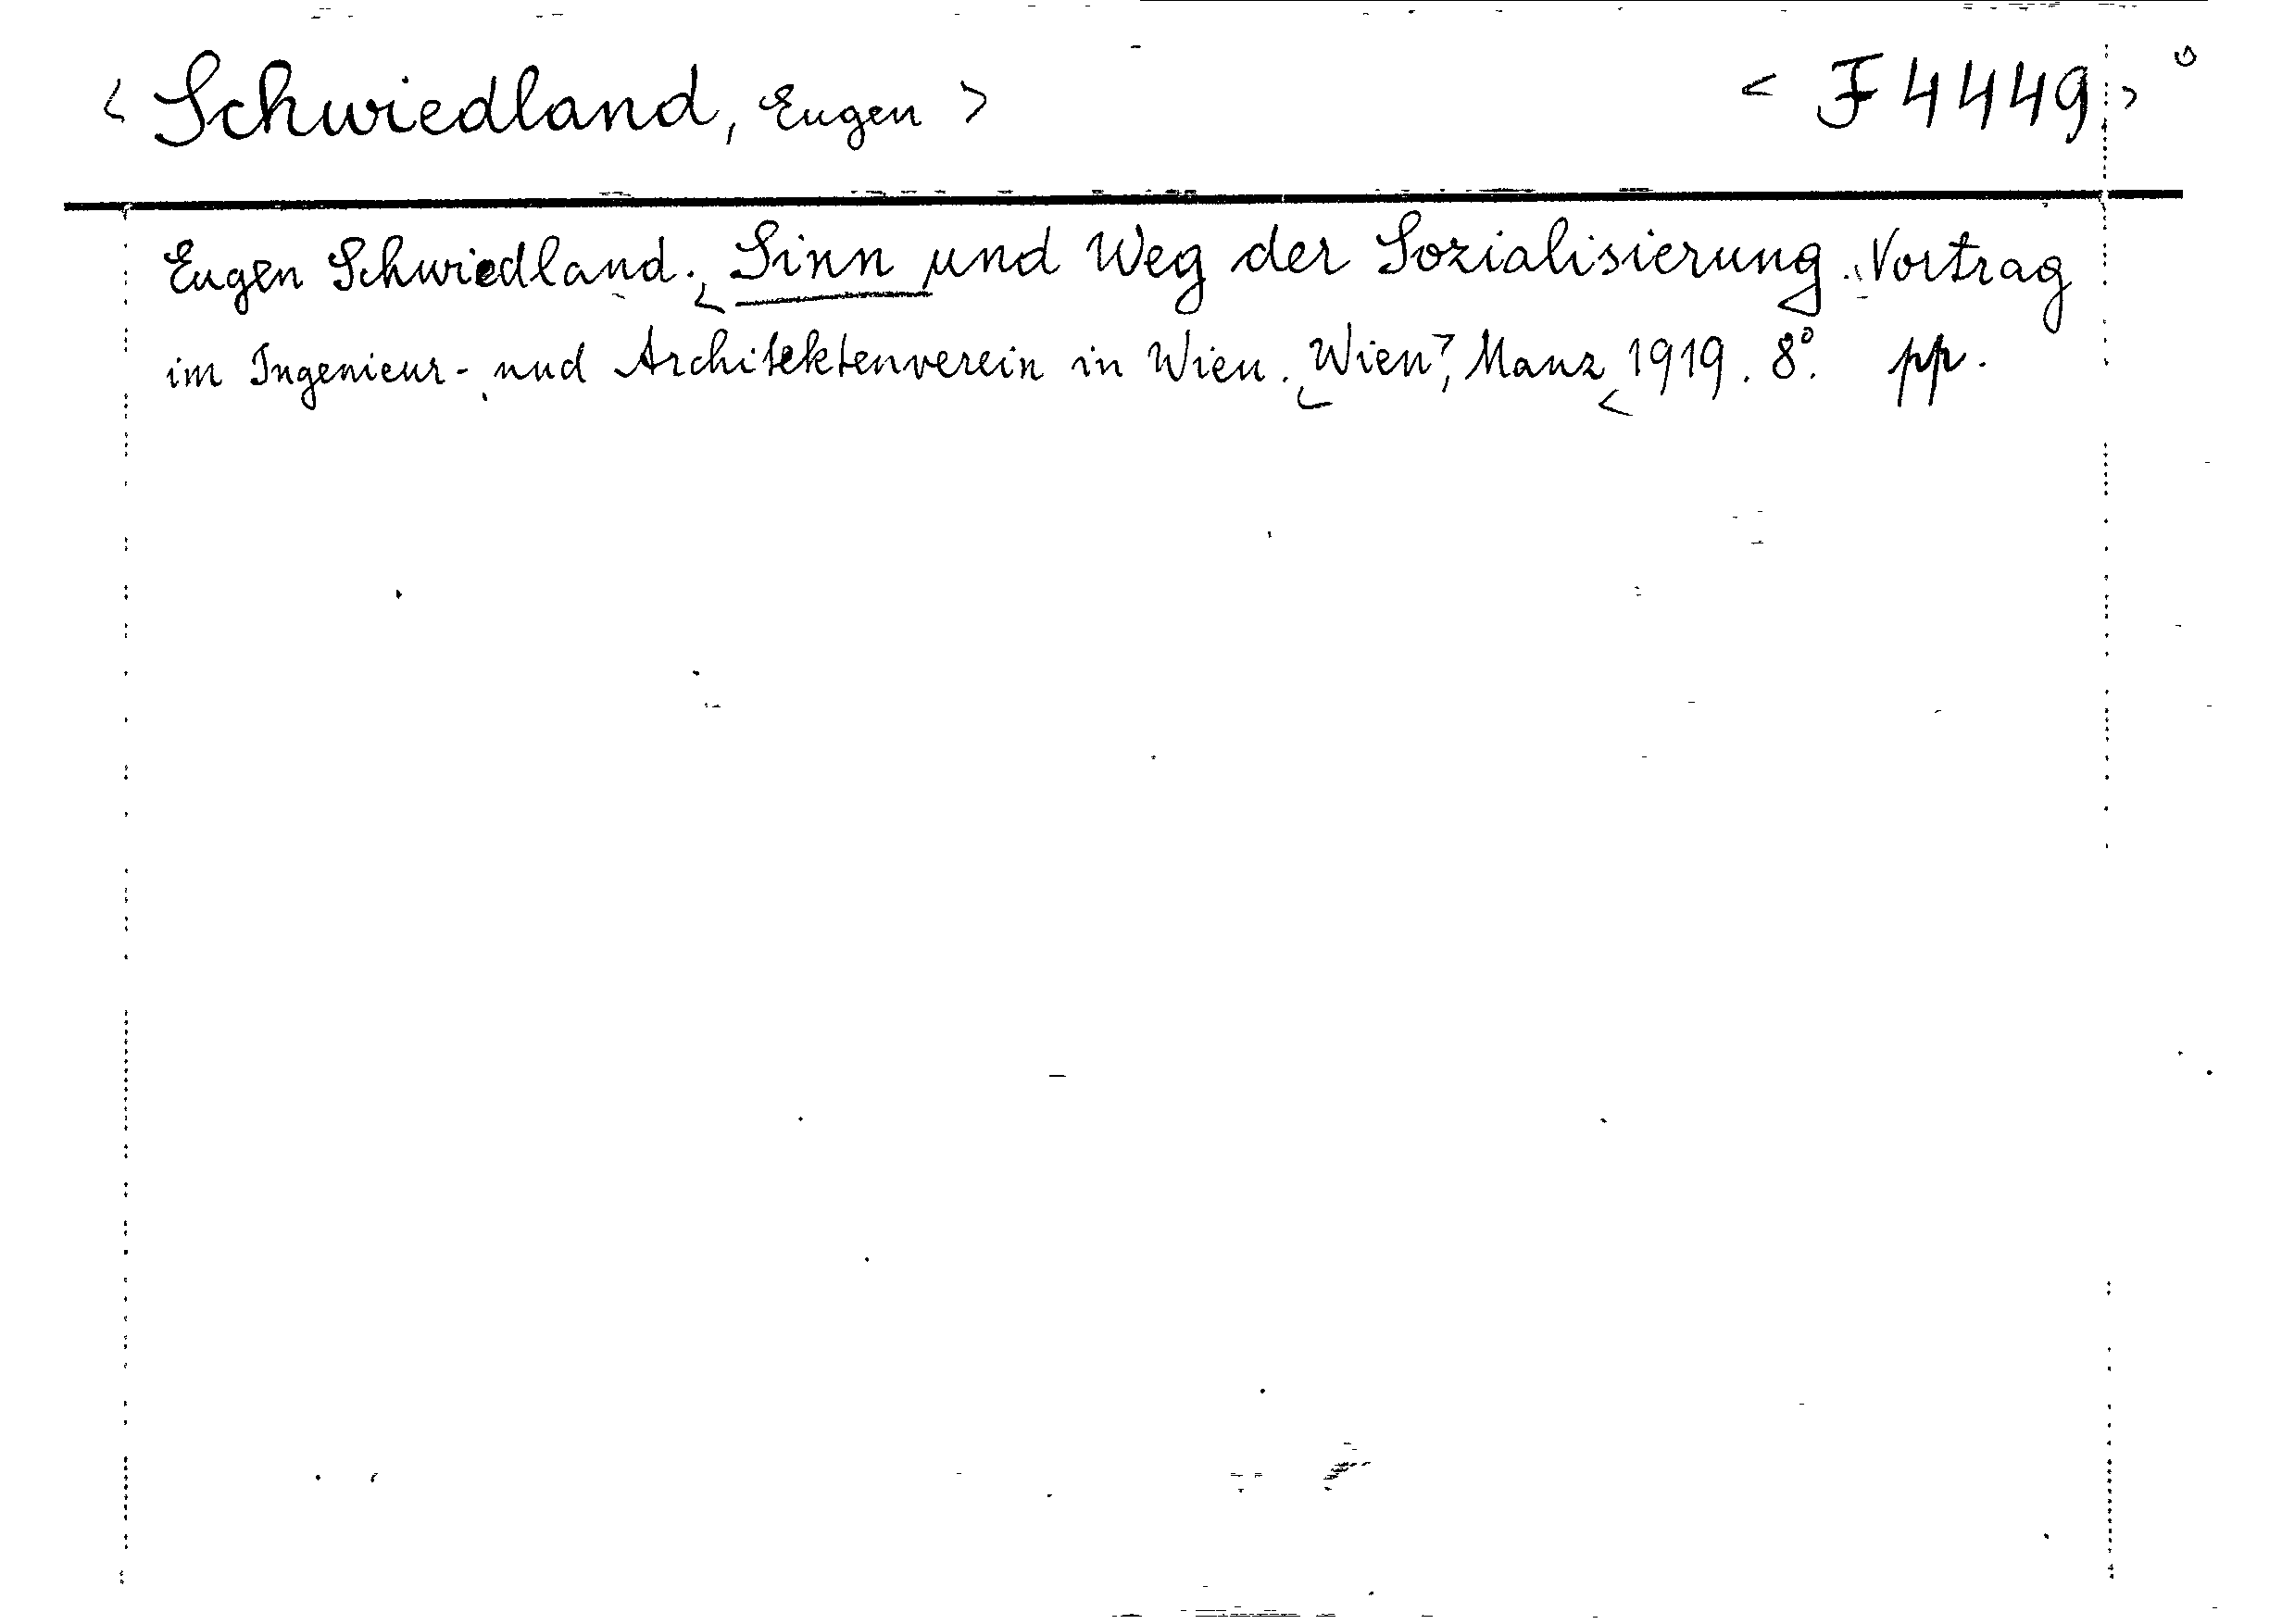 < Schwiedland, Eugen > < F 4449 >
Eugen Schwiedland. Sinn und Weg der Sozialisierung. Vortrag
im Ingenieur- und Architektenverein in Wien. Wien, Manz 1919. 8°. pp.